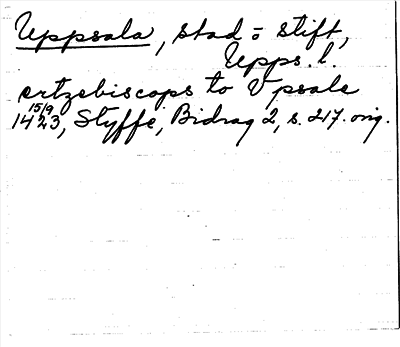 Uppsala, stad o. stift,
Upps. l.
ertzebiscops to Vpsale
15/9
1423, Styffe, Bidrag 2, s. 217. orig.